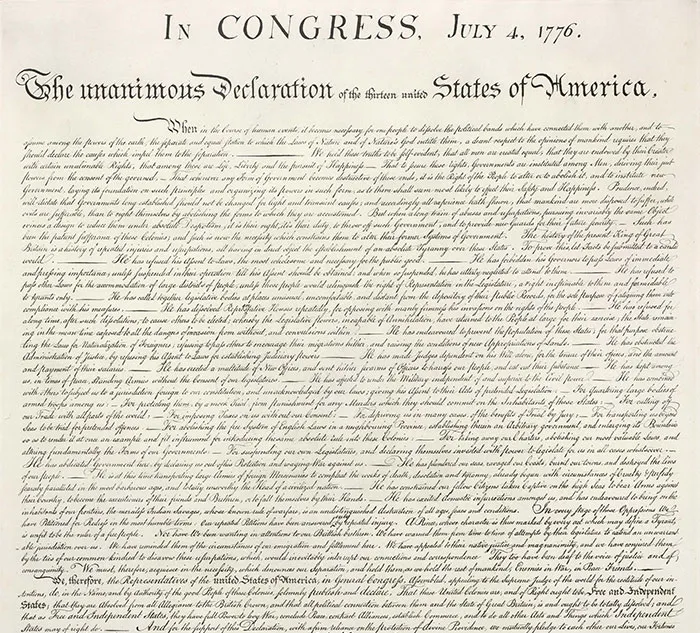 IN CONGRESS, JULY 4, 1776.
The unanimous Declaration of the thirteen united States of America.
When in the Course of human events, it becomes necessary for one people to dissolve the political bands which have connected them with another, and to
assume among the powers of the earth, the separate and equal station to which the Laws of Nature and of Nature's God entitle them, a decent respect to the opinions of mankind requires that they
should declare the causes which impel them to the separation. — We hold these truths to be self-evident, that all men are created equal, that they are endowed by their Creator
with certain unalienable Rights, that among these are Life, Liberty and the pursuit of Happiness. — That to secure these rights, Governments are instituted among Men, deriving their just
powers from the consent of the governed, — That whenever any Form of Government becomes destructive of these ends, it is the Right of the People to alter or to abolish it, and to institute new
Government, laying its foundation on such principles and organizing its powers in such form, as to them shall seem most likely to effect their Safety and Happiness. Prudence, indeed,
will dictate that Governments long established should not be changed for light and transient causes; and accordingly all experience hath shewn, that mankind are more disposed to suffer, while
evils are sufferable, than to right themselves by abolishing the forms to which they are accustomed. But when a long train of abuses and usurpations, pursuing invariably the same Object
evinces a design to reduce them under absolute Despotism, it is their right, it is their duty, to throw off such Government, and to provide new Guards for their future security. — Such has
been the patient sufferance of these Colonies; and such is now the necessity which constrains them to alter their former Systems of Government. The history of the present King of Great
Britain is a history of repeated injuries and usurpations, all having in direct object the establishment of an absolute Tyranny over these States. To prove this, let Facts be submitted to a candid
world. — He has refused his Assent to Laws, the most wholesome and necessary for the public good. — He has forbidden his Governors to pass Laws of immediate
and pressing importance, unless suspended in their operation till his Assent should be obtained; and when so suspended, he has utterly neglected to attend to them. — He has refused to
pass other Laws for the accommodation of large districts of people, unless those people would relinquish the right of Representation in the Legislature, a right inestimable to them and formidable
to tyrants only. — He has called together legislative bodies at places unusual, uncomfortable, and distant from the depository of their Public Records, for the sole purpose of fatiguing them into
compliance with his measures. — He has dissolved Representative Houses repeatedly, for opposing with manly firmness his invasions on the rights of the people. — He has refused for
a long time, after such dissolutions, to cause others to be elected; whereby the Legislative powers, incapable of Annihilation, have returned to the People at large for their exercise; the State remain-
ing in the mean time exposed to all the dangers of invasion from without, and convulsions within. — He has endeavoured to prevent the population of these States; for that purpose obstruc-
ting the Laws for Naturalization of Foreigners; refusing to pass others to encourage their migrations hither, and raising the conditions of new Appropriations of Lands. — He has obstructed the
Administration of Justice, by refusing his Assent to Laws for establishing Judiciary powers. — He has made Judges dependent on his Will alone, for the tenure of their offices, and the amount
and payment of their salaries. — He has erected a multitude of New Offices, and sent hither swarms of Officers to harrass our People, and eat out their substance. — He has kept among
us, in times of peace, Standing Armies without the Consent of our legislatures. — He has affected to render the Military independent of and superior to the Civil power. — He has combined
with others to subject us to a jurisdiction foreign to our constitution, and unacknowledged by our laws; giving his Assent to their Acts of pretended Legislation: — For Quartering large bodies of
armed troops among us: — For protecting them, by a mock Trial, from punishment for any Murders which they should commit on the Inhabitants of these States: — For cutting off
our Trade with all parts of the world: — For imposing Taxes on us without our Consent: — For depriving us in many cases, of the benefits of Trial by Jury: — For transporting us beyond
Seas to be tried for pretended offences — For abolishing the free System of English Laws in a neighbouring Province, establishing therein an Arbitrary government, and enlarging its Boundaries
so as to render it at once an example and fit instrument for introducing the same absolute rule into these Colonies: — For taking away our Charters, abolishing our most valuable Laws, and
altering fundamentally the Forms of our Governments: — For suspending our own Legislatures, and declaring themselves invested with power to legislate for us in all cases whatsoever. —
He has abdicated Government here, by declaring us out of his Protection and waging War against us. — He has plundered our seas, ravaged our Coasts, burnt our towns, and destroyed the lives
of our people. — He is at this time transporting large Armies of foreign Mercenaries to compleat the works of death, desolation and tyranny, already begun with circumstances of Cruelty & perfidy
scarcely paralleled in the most barbarous ages, and totally unworthy the Head of a civilized nation. — He has constrained our fellow Citizens taken Captive on the high Seas to bear Arms against
their Country, to become the executioners of their friends and Brethren, or to fall themselves by their Hands. — He has excited domestic insurrections amongst us, and has endeavoured to bring on the
inhabitants of our frontiers, the merciless Indian Savages, whose known rule of warfare, is an undistinguished destruction of all ages, sexes and conditions. In every stage of these Oppressions We
have Petitioned for Redress in the most humble terms: Our repeated Petitions have been answered only by repeated injury. A Prince, whose character is thus marked by every act which may define a Tyrant,
is unfit to be the ruler of a free people. Nor have We been wanting in attentions to our Brittish brethren. We have warned them from time to time of attempts by their legislature to extend an unwarrant-
able jurisdiction over us. We have reminded them of the circumstances of our emigration and settlement here. We have appealed to their native justice and magnanimity, and we have conjured them
by the ties of our common kindred to disavow these usurpations, which, would inevitably interrupt our connections and correspondence. They too have been deaf to the voice of justice and of
consanguinity. We must, therefore, acquiesce in the necessity, which denounces our Separation, and hold them, as we hold the rest of mankind, Enemies in War, in Peace Friends. —
We, therefore, the Representatives of the united States of America, in General Congress, Assembled, appealing to the Supreme Judge of the world for the rectitude of our in-
tentions, do, in the Name, and by Authority of the good People of these Colonies, solemnly publish and declare, That these United Colonies are, and of Right ought to be Free and Independent
States; that they are Absolved from all Allegiance to the British Crown, and that all political connection between them and the State of Great Britain, is and ought to be totally dissolved; and
that as Free and Independent States, they have full Power to levy War, conclude Peace, contract Alliances, establish Commerce, and to do all other Acts and Things which Independent
States may of right do. — And for the support of this Declaration, with a firm reliance on the protection of divine Providence, we mutually pledge to each other our Lives, our Fortunes